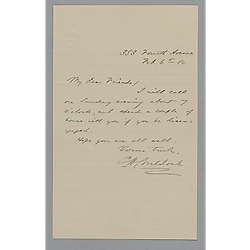 555 Fourth Avenue
Feb 6th 80
My dear Friends,
I will call
on Sunday evening about 7
o'clock, and spend a couple of
hours with you if you be disen-
gaged.
Hope you are all well.
Yours truly,